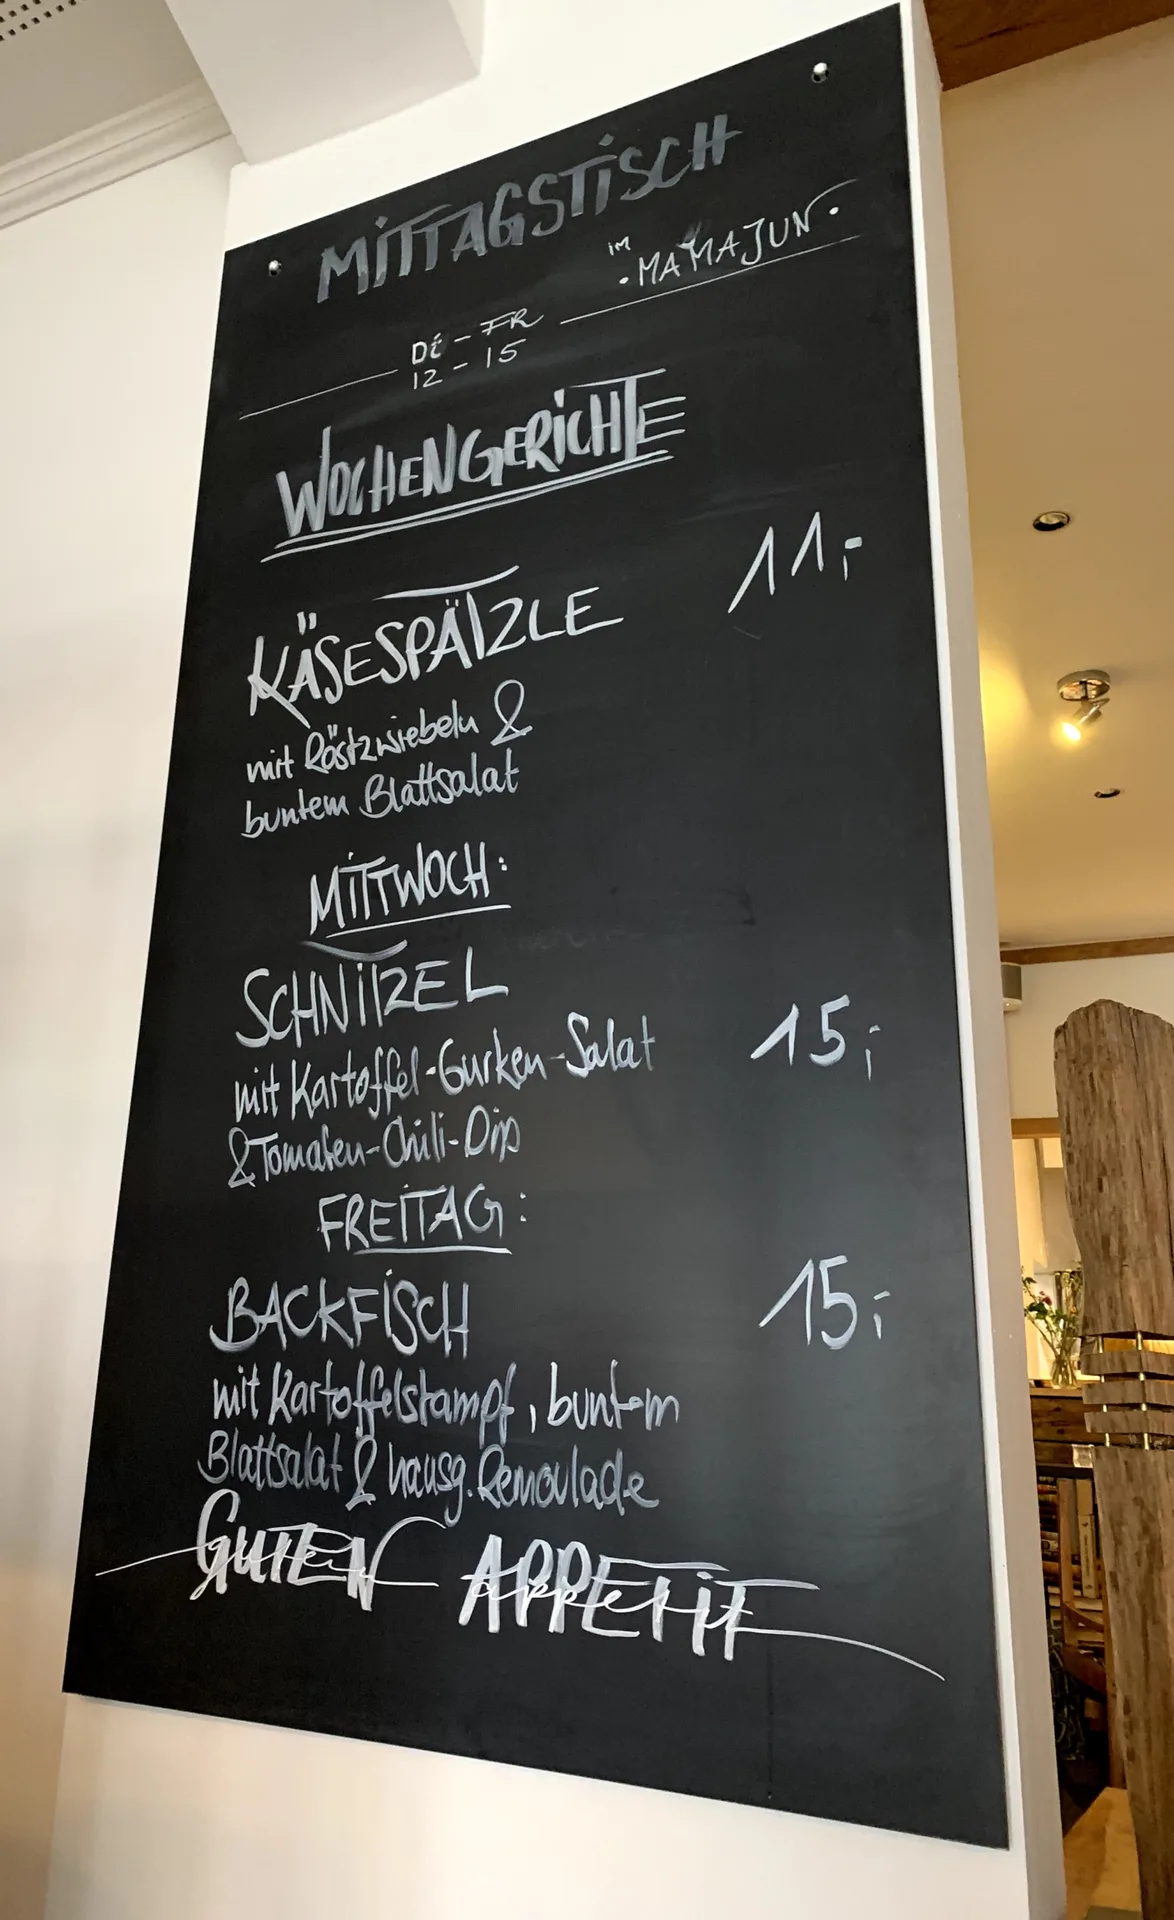 MITTAGSTISCH
IM
·MAMAJUN·
Di - FR
12 - 15
WOCHENGERICHTE
KÄSESPÄTZLE 11,-
mit Röstzwiebeln &
buntem Blattsalat
MITTWOCH:
SCHNITZEL
mit Kartoffel-Gurken-Salat 15,-
& Tomaten-Chili-Dip
FREITAG:
BACKFISCH 15,-
mit Kartoffelstampf, buntem
Blattsalat & hausg. Remoulade
GUTEN APPETIT
guten appetit